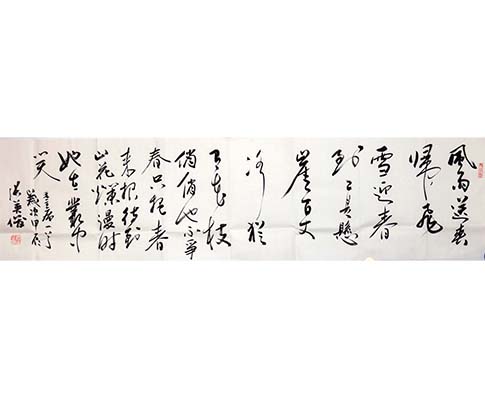 風雨送春
歸飛
雪迎春
到已是懸
崖百丈
冰猶
有花枝
俏俏也不爭
春只把春
来報待到
山花爛漫时
她在叢中
笑
歲次甲辰